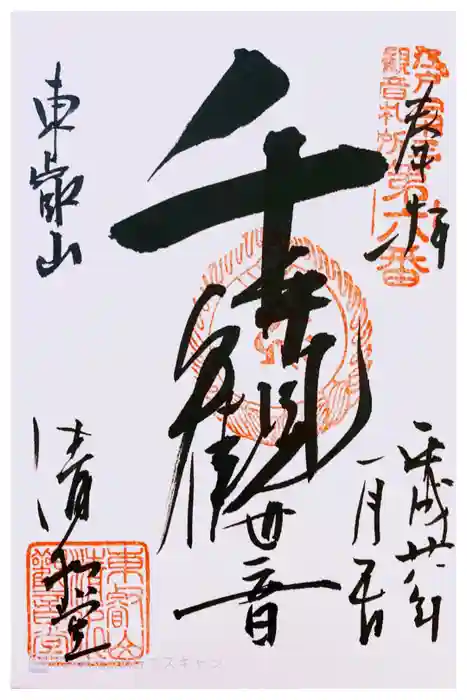 奉拝
江戸
観音札所
第六番
平成廿八年
一月五日
千手観世音
東叡山
清水堂
東叡山
清水
観音堂
でスキャン